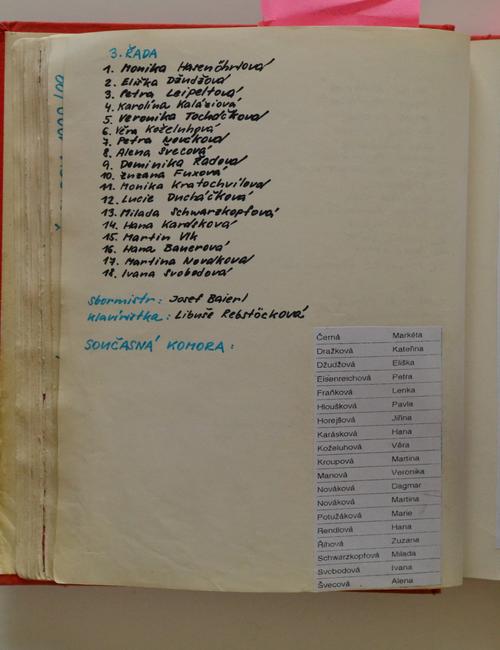 3. ŘADA
1. Monika Hasenöhrlová
2. Eliška Džudžová
3. Petra Leipeltová
4. Karolína Kaláziová
5. Veronika Tocháčková
6. Věra Koželuhová
7. Petra Nováková
8. Alena Švecová
9. Dominika Řádová
10. Zuzana Fuxová
11. Monika Kratochvílová
12. Lucie Ducháčková
13. Milada Schwarzkopfová
14. Hana Karásková
15. Martin Vlk
16. Hana Bauerová
17. Martina Nováková
18. Ivana Svobodová
sbormistr: Josef Baierl
klavíristka: Libuše Rebstöcková
SOUČASNÁ KOMORA:
Černá Markéta
Dražková Kateřina
Džudžová Eliška
Eisenreichová Petra
Fraňková Lenka
Hloušková Pavla
Horejšová Jiřina
Karásková Hana
Koželuhová Věra
Kroupová Martina
Manová Veronika
Nováková Dagmar
Nováková Martina
Potužáková Marie
Rendlová Hana
Říhová Zuzana
Schwarzkopfová Milada
Svobodová Ivana
Švecová Alena